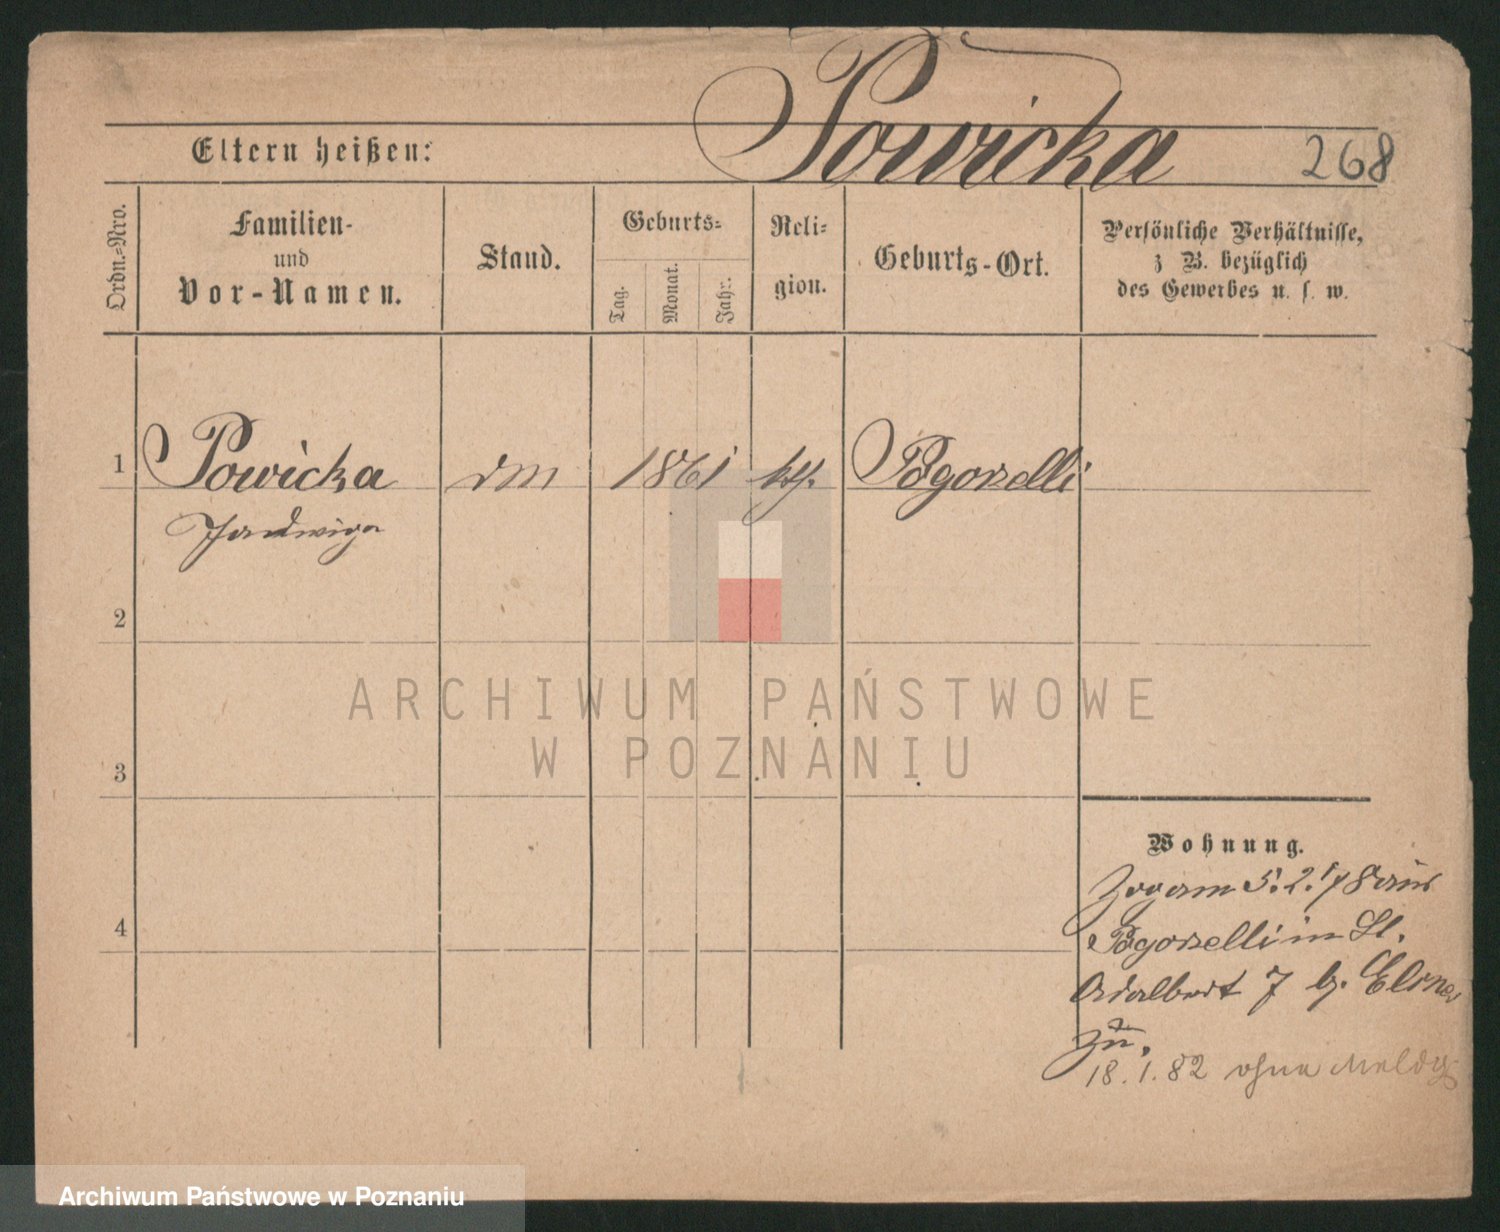 Powicka
Eltern heißen:
268
Ordn.-Nro.
Familien-
und
Vor-Namen.
Stand.
Geburts-
Tag.
Monat.
Jahr.
Reli-
gion.
Geburts-Ort.
Persönliche Verhältnisse,
z B. bezüglich
des Gewerbes u. s. w.
1
Powicka
dM
1861
kth.
Pogorzelli
Jadwiga
2
ARCHIWUM PAŃSTWOWE
W POZNANIU
3
Wohnung.
Zog am 5.2.78 aus
Pogorzelli in St.
Adalbert 7 b.
zu.
4
18.1.82 ohne Meldg
Archiwum Państwowe w Poznaniu